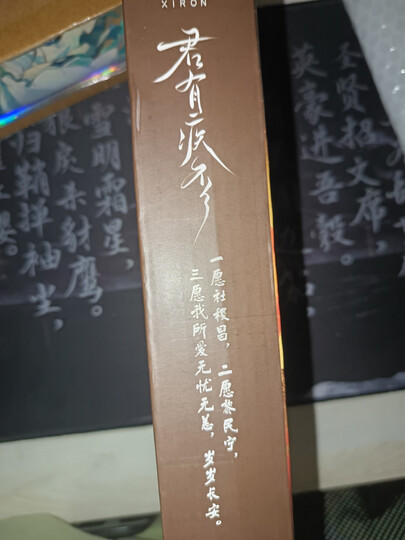 XIRON
君有疾否
一愿社稷昌，二愿黎民宁，
三愿我所爱无忧无恙，岁岁长安。
圣贤招文席，
英豪进吾彀。
雪明霜星，
豺鹰。
归鞘掸袖尘，